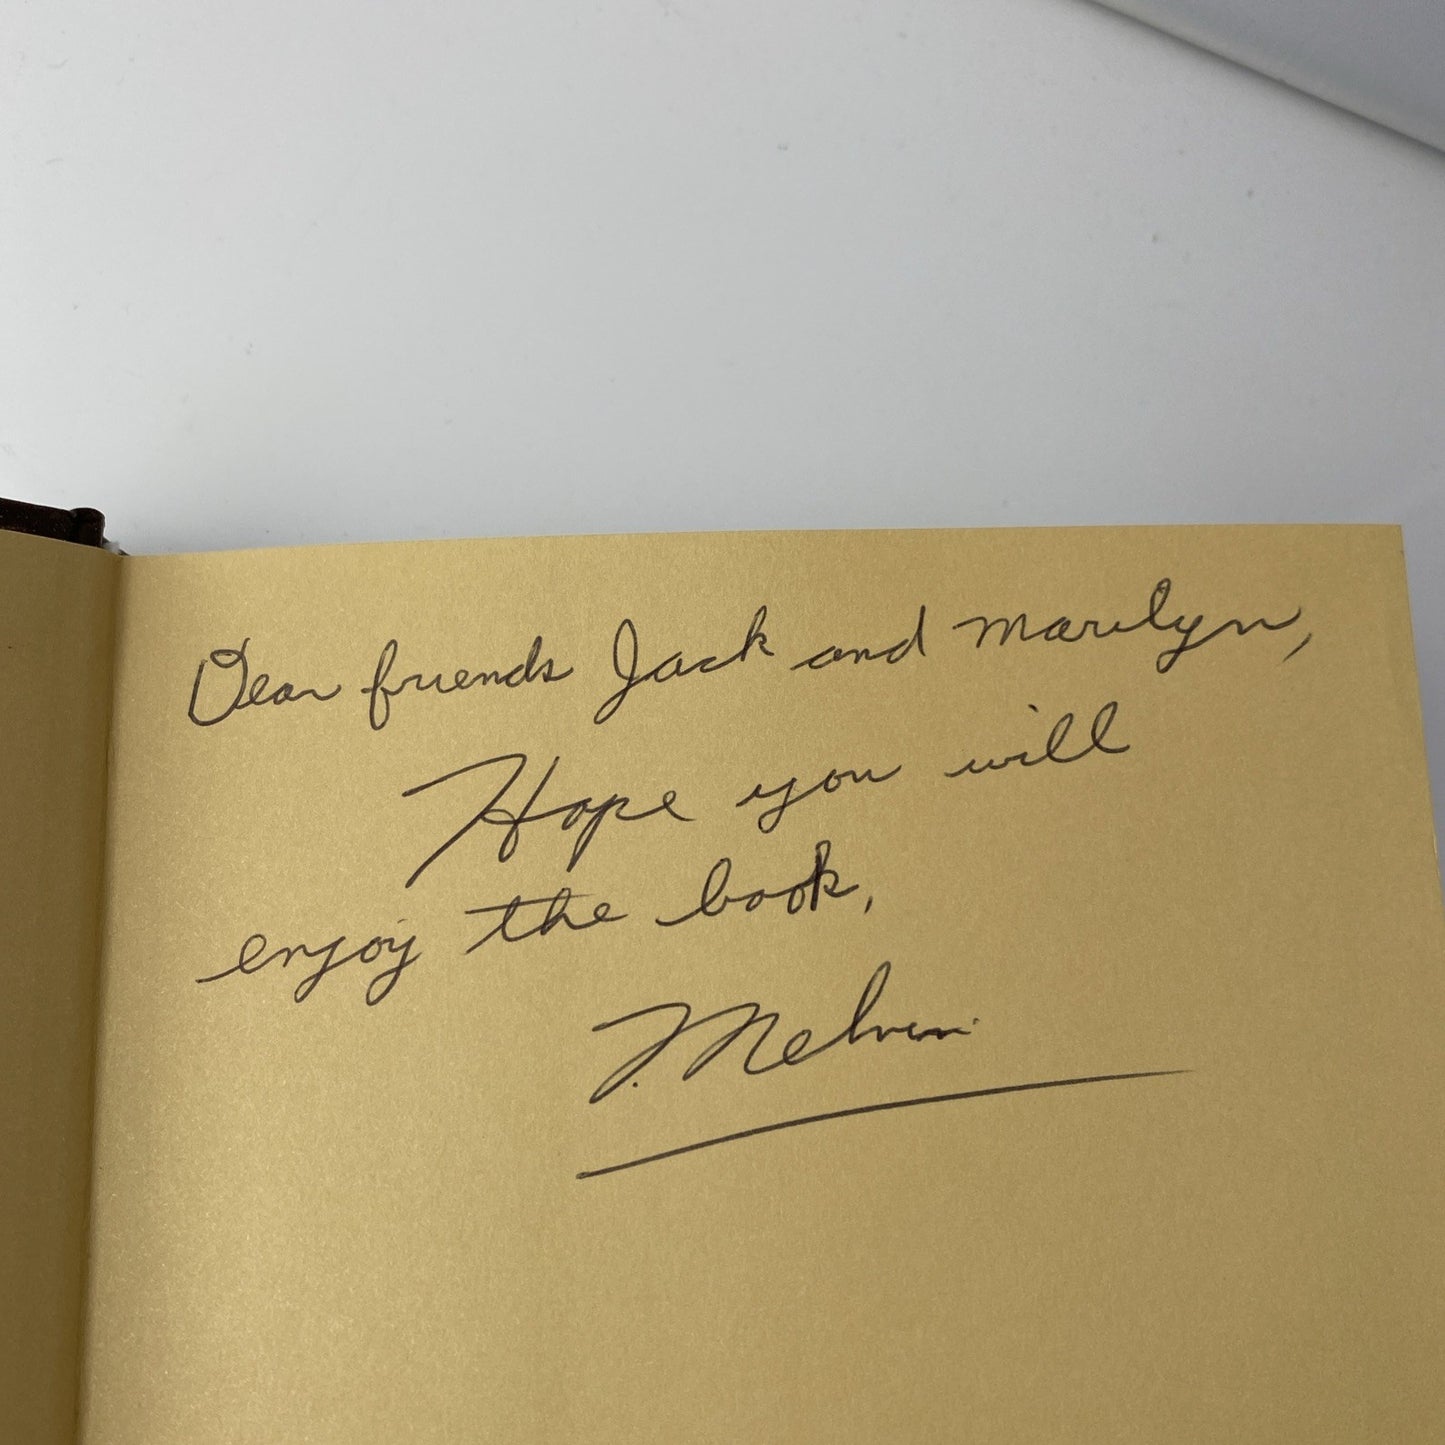 Dear friends Jack and Marilyn,
Hope you will
enjoy the book,
T. Melvin